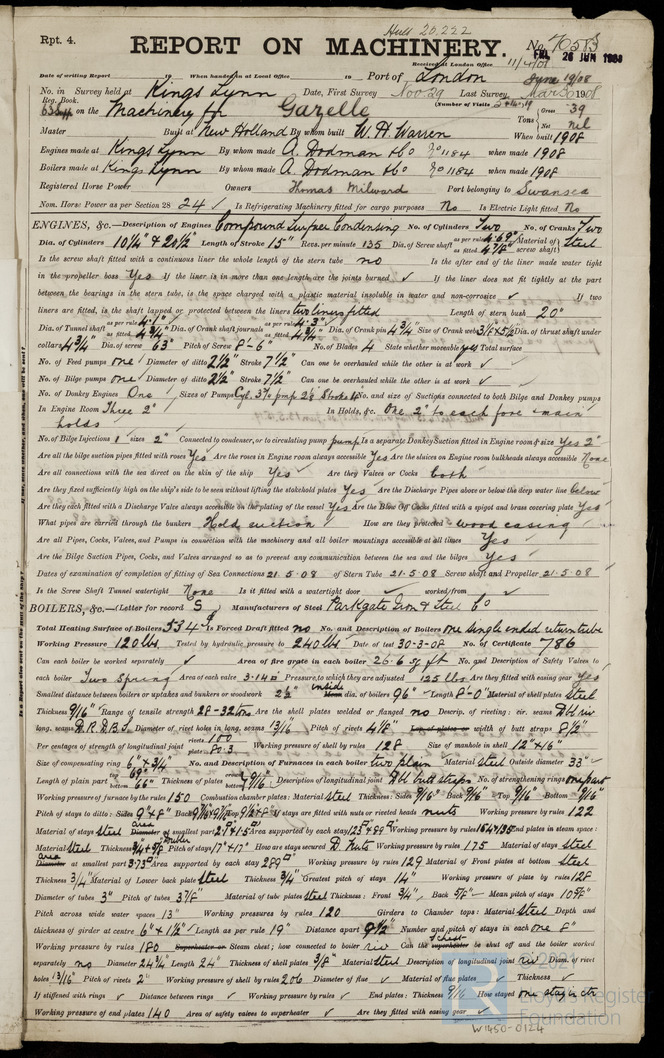 Hull 20.222
Rpt. 4.
REPORT ON MACHINERY.
No. 70585
Received at London Office 11/4/01
FRI. 26 JUN 1908
Date of writing Report When handed in at Local Office 10 Port of London June 19/08
No. in Survey held at Kings Lynn Date, First Survey Nov 29 Last Survey 1908
Reg. Book. (Number of Visits
on the Machinery for Gazelle Tons Gross 39 Net nil
Master Built at New Holland By whom built W. H. Warren When built 1908
Engines made at Kings Lynn By whom made A. Dodman & Co No 1184 when made 1908
Boilers made at Kings Lynn By whom made A. Dodman & Co No 1184 when made 1908
Registered Horse Power Owners Thomas Milward Port belonging to Swansea
Nom. Horse Power as per Section 28 24 ✓ Is Refrigerating Machinery fitted for cargo purposes No Is Electric Light fitted No
ENGINES, &c.—Description of Engines Compound Surface Condensing No. of Cylinders Two No. of Cranks Two
Dia. of Cylinders 10¼" & 20½" Length of Stroke 15" Revs. per minute 135 Dia. of Screw shaft as per rule 4.69" as fitted 4⅞" Material of screw shaft Steel
Is the screw shaft fitted with a continuous liner the whole length of the stern tube no Is the after end of the liner made water tight
in the propeller boss Yes If the liner is in more than one length are the joints burned ✓ If the liner does not fit tightly at the part
between the bearings in the stern tube, is the space charged with a plastic material insoluble in water and non-corrosive ✓ If two
liners are fitted, is the shaft lapped or protected between the liners two liners fitted Length of stern bush 20"
Dia. of Tunnel shaft as per rule as fitted 4¾" Dia. of Crank shaft journals as per rule 4.3" as fitted 4¾" Dia. of Crank pin 4¾" Size of Crank webs 3⅛ x 5½ Dia. of thrust shaft under
collars 4¾" Dia. of screw 63" Pitch of Screw 8'-6" No. of Blades 4 State whether moveable yes Total surface
No. of Feed pumps one Diameter of ditto 2½" Stroke 7½" Can one be overhauled while the other is at work ✓
No. of Bilge pumps one Diameter of ditto 2½" Stroke 7½" Can one be overhauled while the other is at work ✓
No. of Donkey Engines One Sizes of Pumps No. and size of Suctions connected to both Bilge and Donkey pumps
In Engine Room Three 2" In Holds, &c. One 2" to each fore & main
holds ✓
No. of Bilge Injections 1 sizes 2" Connected to condenser, or to circulating pump pump Is a separate Donkey Suction fitted in Engine room & size Yes 2"
Are all the bilge suction pipes fitted with roses Yes Are the roses in Engine room always accessible Yes Are the sluices on Engine room bulkheads always accessible None
Are all connections with the sea direct on the skin of the ship Yes ✓ Are they Valves or Cocks both
Are they fixed sufficiently high on the ship's side to be seen without lifting the stokehold plates Yes Are the Discharge Pipes above or below the deep water line below
Are they each fitted with a Discharge Valve always accessible on the plating of the vessel Yes Are the Blow Off Cocks fitted with a spigot and brass covering plate Yes
What pipes are carried through the bunkers Hold suction ✓ How are they protected wood casing
Are all Pipes, Cocks, Valves, and Pumps in connection with the machinery and all boiler mountings accessible at all times Yes
Are the Bilge Suction Pipes, Cocks, and Valves arranged so as to prevent any communication between the sea and the bilges Yes
Dates of examination of completion of fitting of Sea Connections 21.5.08 of Stern Tube 21.5.08 Screw shaft and Propeller 21.5.08
Is the Screw Shaft Tunnel watertight None Is it fitted with a watertight door ✓ worked from ✓
BOILERS, &c.—(Letter for record S) Manufacturers of Steel Parkgate Iron & Steel Co
Total Heating Surface of Boilers 534 Is Forced Draft fitted no No. and Description of Boilers one single ended return tube
Working Pressure 120 lbs. Tested by hydraulic pressure to 240 lbs. Date of test 30-3-08 No. of Certificate 786
Can each boiler be worked separately ✓ Area of fire grate in each boiler 26.6 sq ft No. and Description of Safety Valves to
each boiler Two Spring Area of each valve 3.14 Pressure to which they are adjusted 125 lbs Are they fitted with easing gear Yes
Smallest distance between boilers or uptakes and bunkers or woodwork inside dia. of boilers 96" Length 8'-0" Material of shell plates Steel
Thickness 9/16" Range of tensile strength 28-32 tons Are the shell plates welded or flanged no Descrip. of riveting: cir. seams Dbl riv
long. seams D.R.D.B.S. Diameter of rivet holes in long. seams 13/16" Pitch of rivets 4⅛" Lap of plates or width of butt straps 8½"
Per centages of strength of longitudinal joint rivets 100 plate 80.3 Working pressure of shell by rules 128 Size of manhole in shell 12" x 16"
Size of compensating ring 6" x ¾" No. and Description of Furnaces in each boiler two plain Material Steel Outside diameter 33"
Length of plain part top 69" bottom 66" Thickness of plates crown bottom 9/16" Description of longitudinal joint Dbl butt straps No. of strengthening rings
Working pressure of furnace by the rules 150 Combustion chamber plates: Material steel Thickness: Sides 9/16" Back 9/16" Top 9/16" Bottom 9/16"
Pitch of stays to ditto: Sides 9" x 8" Back Top If stays are fitted with nuts or riveted heads nuts Working pressure by rules 122
Material of stays Steel Diameter area at smallest part Area supported by each stay Working pressure by rules End plates in steam space:
Material Steel Thickness Pitch of stays 17" x 17" How are stays secured D. Nuts Working pressure by rules 175 Material of stays Steel
Diameter Area at smallest part 3.73 Area supported by each stay 289 Working pressure by rules 129 Material of Front plates at bottom Steel
Thickness ¾" Material of Lower back plate Steel Thickness ¾" Greatest pitch of stays 14" Working pressure of plate by rules 128
Diameter of tubes 3" Pitch of tubes 3⅞" Material of tube plates Steel Thickness: Front ¾" Back ⅝" Mean pitch of stays 10⅝"
Pitch across wide water spaces 13" Working pressures by rules 120 Girders to Chamber tops: Material Steel Depth and
thickness of girder at centre 6" x 1½" Length as per rule 19" Distance apart 9½" Number and pitch of stays in each one 8"
Working pressure by rules 180 Superheater or Steam chest; how connected to boiler riv Can the superheater chest be shut off and the boiler worked
separately no Diameter 24¼" Length 24" Thickness of shell plates ⅜" Material Steel Description of longitudinal joint riv Diam. of rivet
holes 13/16" Pitch of rivets 2" Working pressure of shell by rules 206 Diameter of flue ✓ Material of flue plates ✓ Thickness ✓
If stiffened with rings ✓ Distance between rings ✓ Working pressure by rules ✓ End plates: Thickness 9/16" How stayed one stay in ctr
Working pressure of end plates 140 Area of safety valves to superheater ✓ Are they fitted with easing gear ✓
Lloyd's Register
Foundation
W1450-0124